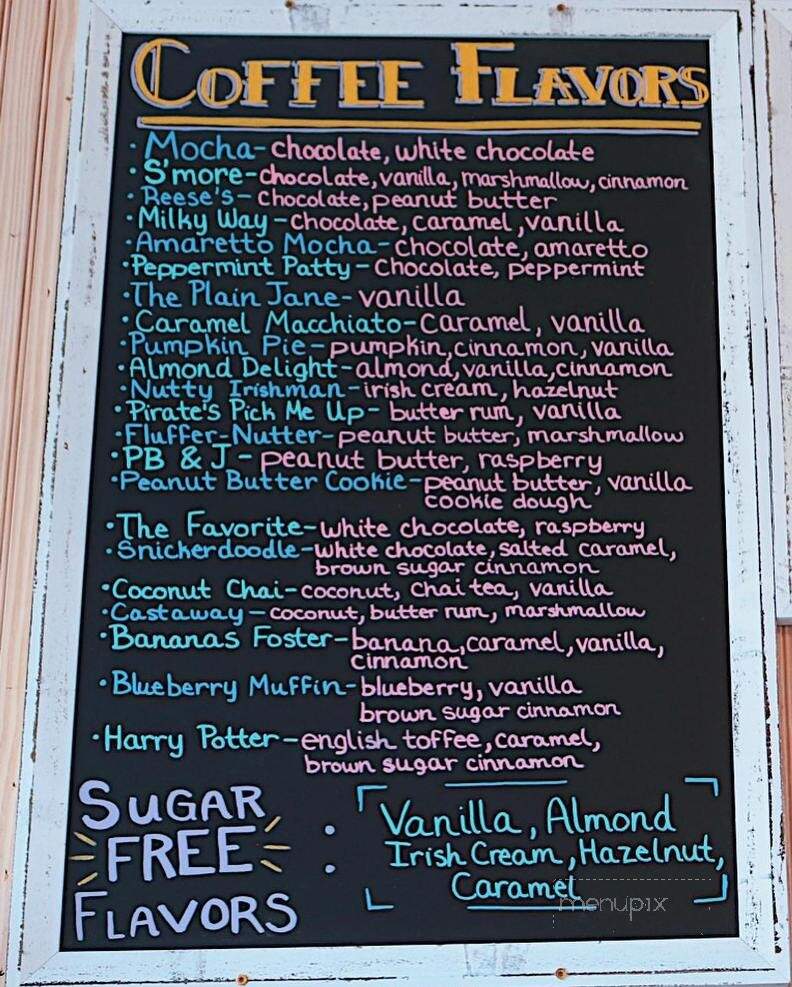 COFFEE FLAVORS
· Mocha- chocolate, white chocolate
· S'more- chocolate, vanilla, marshmallow, cinnamon
· Reese's- Chocolate, peanut butter
· Milky Way - chocolate, caramel, vanilla
· Amaretto Mocha- chocolate, amaretto
· Peppermint Patty - Chocolate, peppermint
· The Plain Jane- vanilla
· Caramel Macchiato- caramel, vanilla
· Pumpkin Pie- pumpkin, cinnamon, vanilla
· Almond Delight- almond, vanilla, cinnamon
· Nutty Irishman- irish cream, hazelnut
· Pirate's Pick Me Up- butter rum, vanilla
· Fluffer-Nutter- peanut butter, marshmallow
· PB & J - peanut butter, raspberry
· Peanut Butter Cookie- peanut butter, vanilla
cookie dough
· The Favorite- white chocolate, raspberry
· Snickerdoodle- white chocolate, salted caramel,
brown sugar cinnamon
· Coconut Chai- coconut, chai tea, vanilla
· Castaway - coconut, butter rum, marshmallow
· Bananas Foster- banana, caramel, vanilla,
cinnamon
· Blueberry Muffin- blueberry, vanilla
brown sugar cinnamon
· Harry Potter- english toffee, caramel,
brown sugar cinnamon
SUGAR
FREE :
FLAVORS
Vanilla, Almond
Irish Cream, Hazelnut,
Caramel
menupix